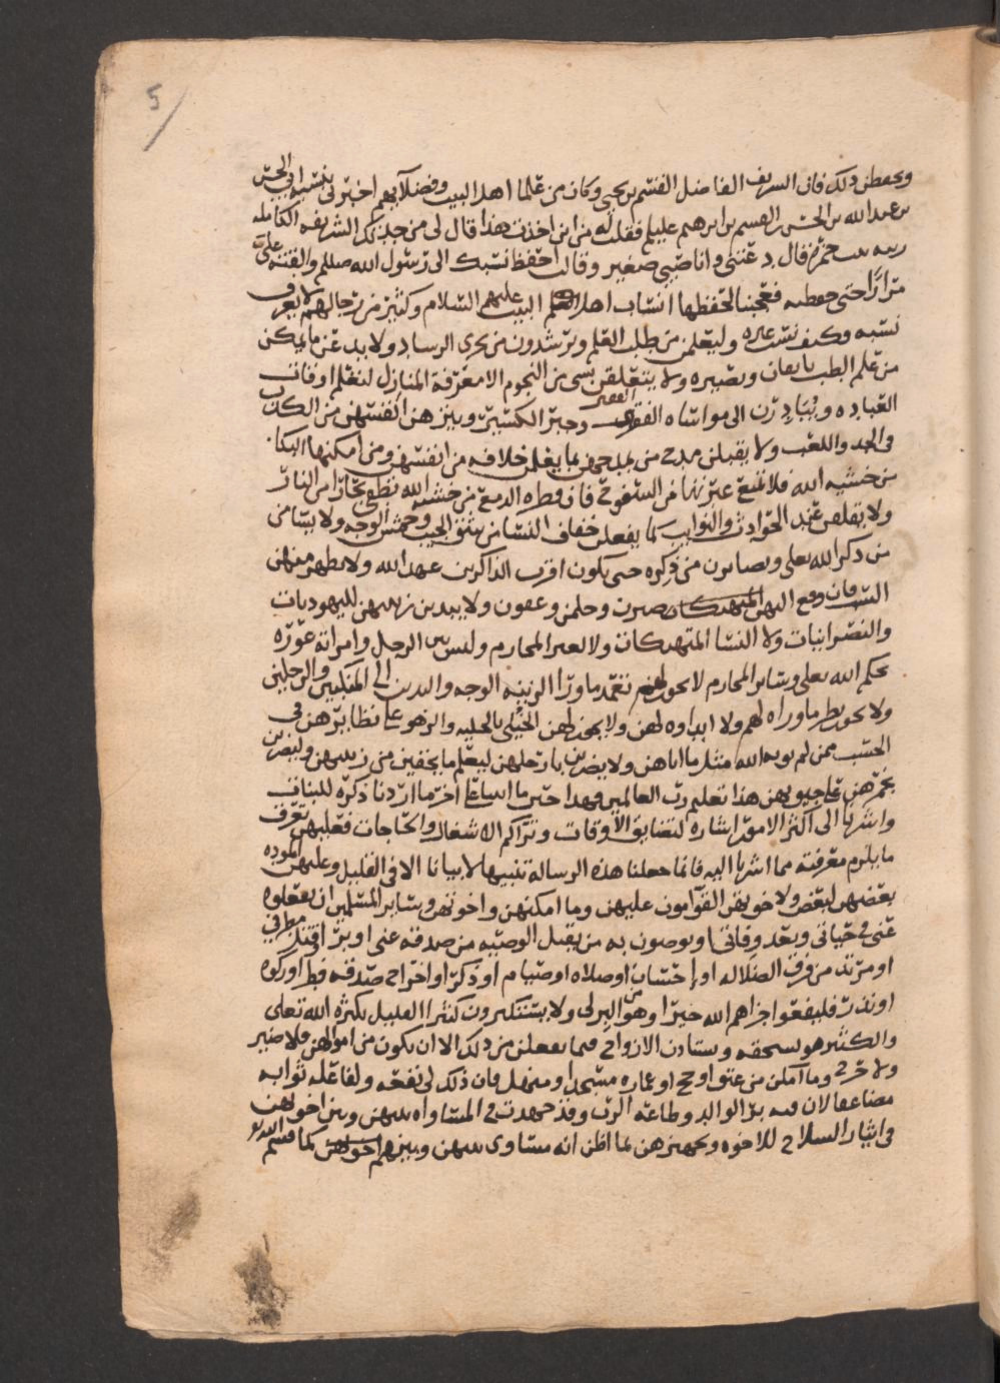 5
ويحفظن ذلك فان الشريف الفاضل القسم بن يحيى وكان من علما اهل البيت وفضلآيهم اخبرني بنسبه الى الحسن
بن عبد الله بن الحسن بن القسم بن ابرهيم عليلم فقلت له من اين اخذت هذا قال لي من جدتك الشريفه الكامله
بنت حمزه قال دعتني وانا صبي صغير وقالت احفظ نسبك الى رسول الله صللم والقته علي
مرارًا حتى حفظته فعجبنا لحفظها انساب اهل البيت عليهم السلام وكثير من رجالهم لا يعرف
نسبه وكيف نسب غيره وليتعلمن من طلب العلم وترشدون من تحرى الرساد ولا بد عن ما يمكن
من علم الطب بايمان وبصيره ولا يتعلقن بشي من النجوم الا معرفة المنازل لتعلم اوقات
العباده ويُبَادِرْن الى مواساه الفقير وجبر الكسير وينزهن انفسهن من الكذب
في الجد واللعب ولا يقبلن مدح من مدحهن بما يعلمن خلافه من انفسهن ومن امكنها البكا
من خشيه الله فلا تمنع عبرتها من السفوح فان قطره الدمع من خشية الله تطفي بحارًا من النار
ولا يقلقن عند الحوادث والنوايب كما يفعلن خفاف النسا من شق الجيب وخمش الوجه ولا يسامن
من ذكر الله تعلى ويصابرن من ذكره حتى يكون اقرب الذاكرين عهد الله ولا يظهر منهن
وحلمن وعفون ولا يبدين زينتهن لليهوديات
والنصرانيات ولا النسا المتهتكات ولا لغير المحارم وليس بين الرجل وامراته عوره
بحكم الله تعلى وساير المحارم لا يجوز لهم تعمد ما ورآ الزينه الوجه واليدين الى المنكبين والرجلين
ولا يجوز نظر ما وراه لهم ولا ابداوه لهن ولا يجوز لهن الخيلى بالحليه والزهو على نظايرهن في
الحسب ممن لم يوته الله مثل ما اتاهن ولا يضربن بارجلهن ليعلم ما يخفين من زينتهن وليضربن
بخمرهن على جيوبهن هذا تعليم رب العالمين فهدا حين ما اتينا على اخر ما اردنا ذكره للبنات
واشرنا الى اكثر الامور اشاره لتضايق الاوقات وتراكم الاشغال والحاجات فعليهن تعرف
ما يلزم معرفته مما اشرنا اليه فانما جعلنا هذه الرساله تنبيها لا بيانا الا في القليل وعليهن الموده
بعضهن لبعض ولاخوتهن القوامون عليهن وما امكنهن واخوتهن وساير المسلمين ان يفعلوه
عني في حياتي وبعد وفاتي او يوصون به من يقبل الوصيه من صدقه عني او بر اقتتل مطرفي
او مرتد من فرق الضلاله او إحتساب او صلاه او صيام او ذكر او اخراج صدقه فطر او زكوه
او نذر فليفعلوا جزاهم الله خيرا وهو من البر لي ولا يستنكرون كثيرا القليل يكثره الله تعلى
والكثير هو يستحقه ويستاذن الازواج فيما يفعلن من ذلك الا ان يكون من اموالهن فلا ضير
ولا حرج وما امكن من عتق او حج او عماره مسجد او منهل فان ذلك لي نفعه ولفاعله ثوابه
مضاعفا لان فيه بر الوالد وطاعة الرب وقد جهدت في المساواه بينهن وبين اخوتهن
في ايثار السلاح للاخوه وتجهيزهن بما اظن انه مساوي بينهن وبينهم كما قسم الله